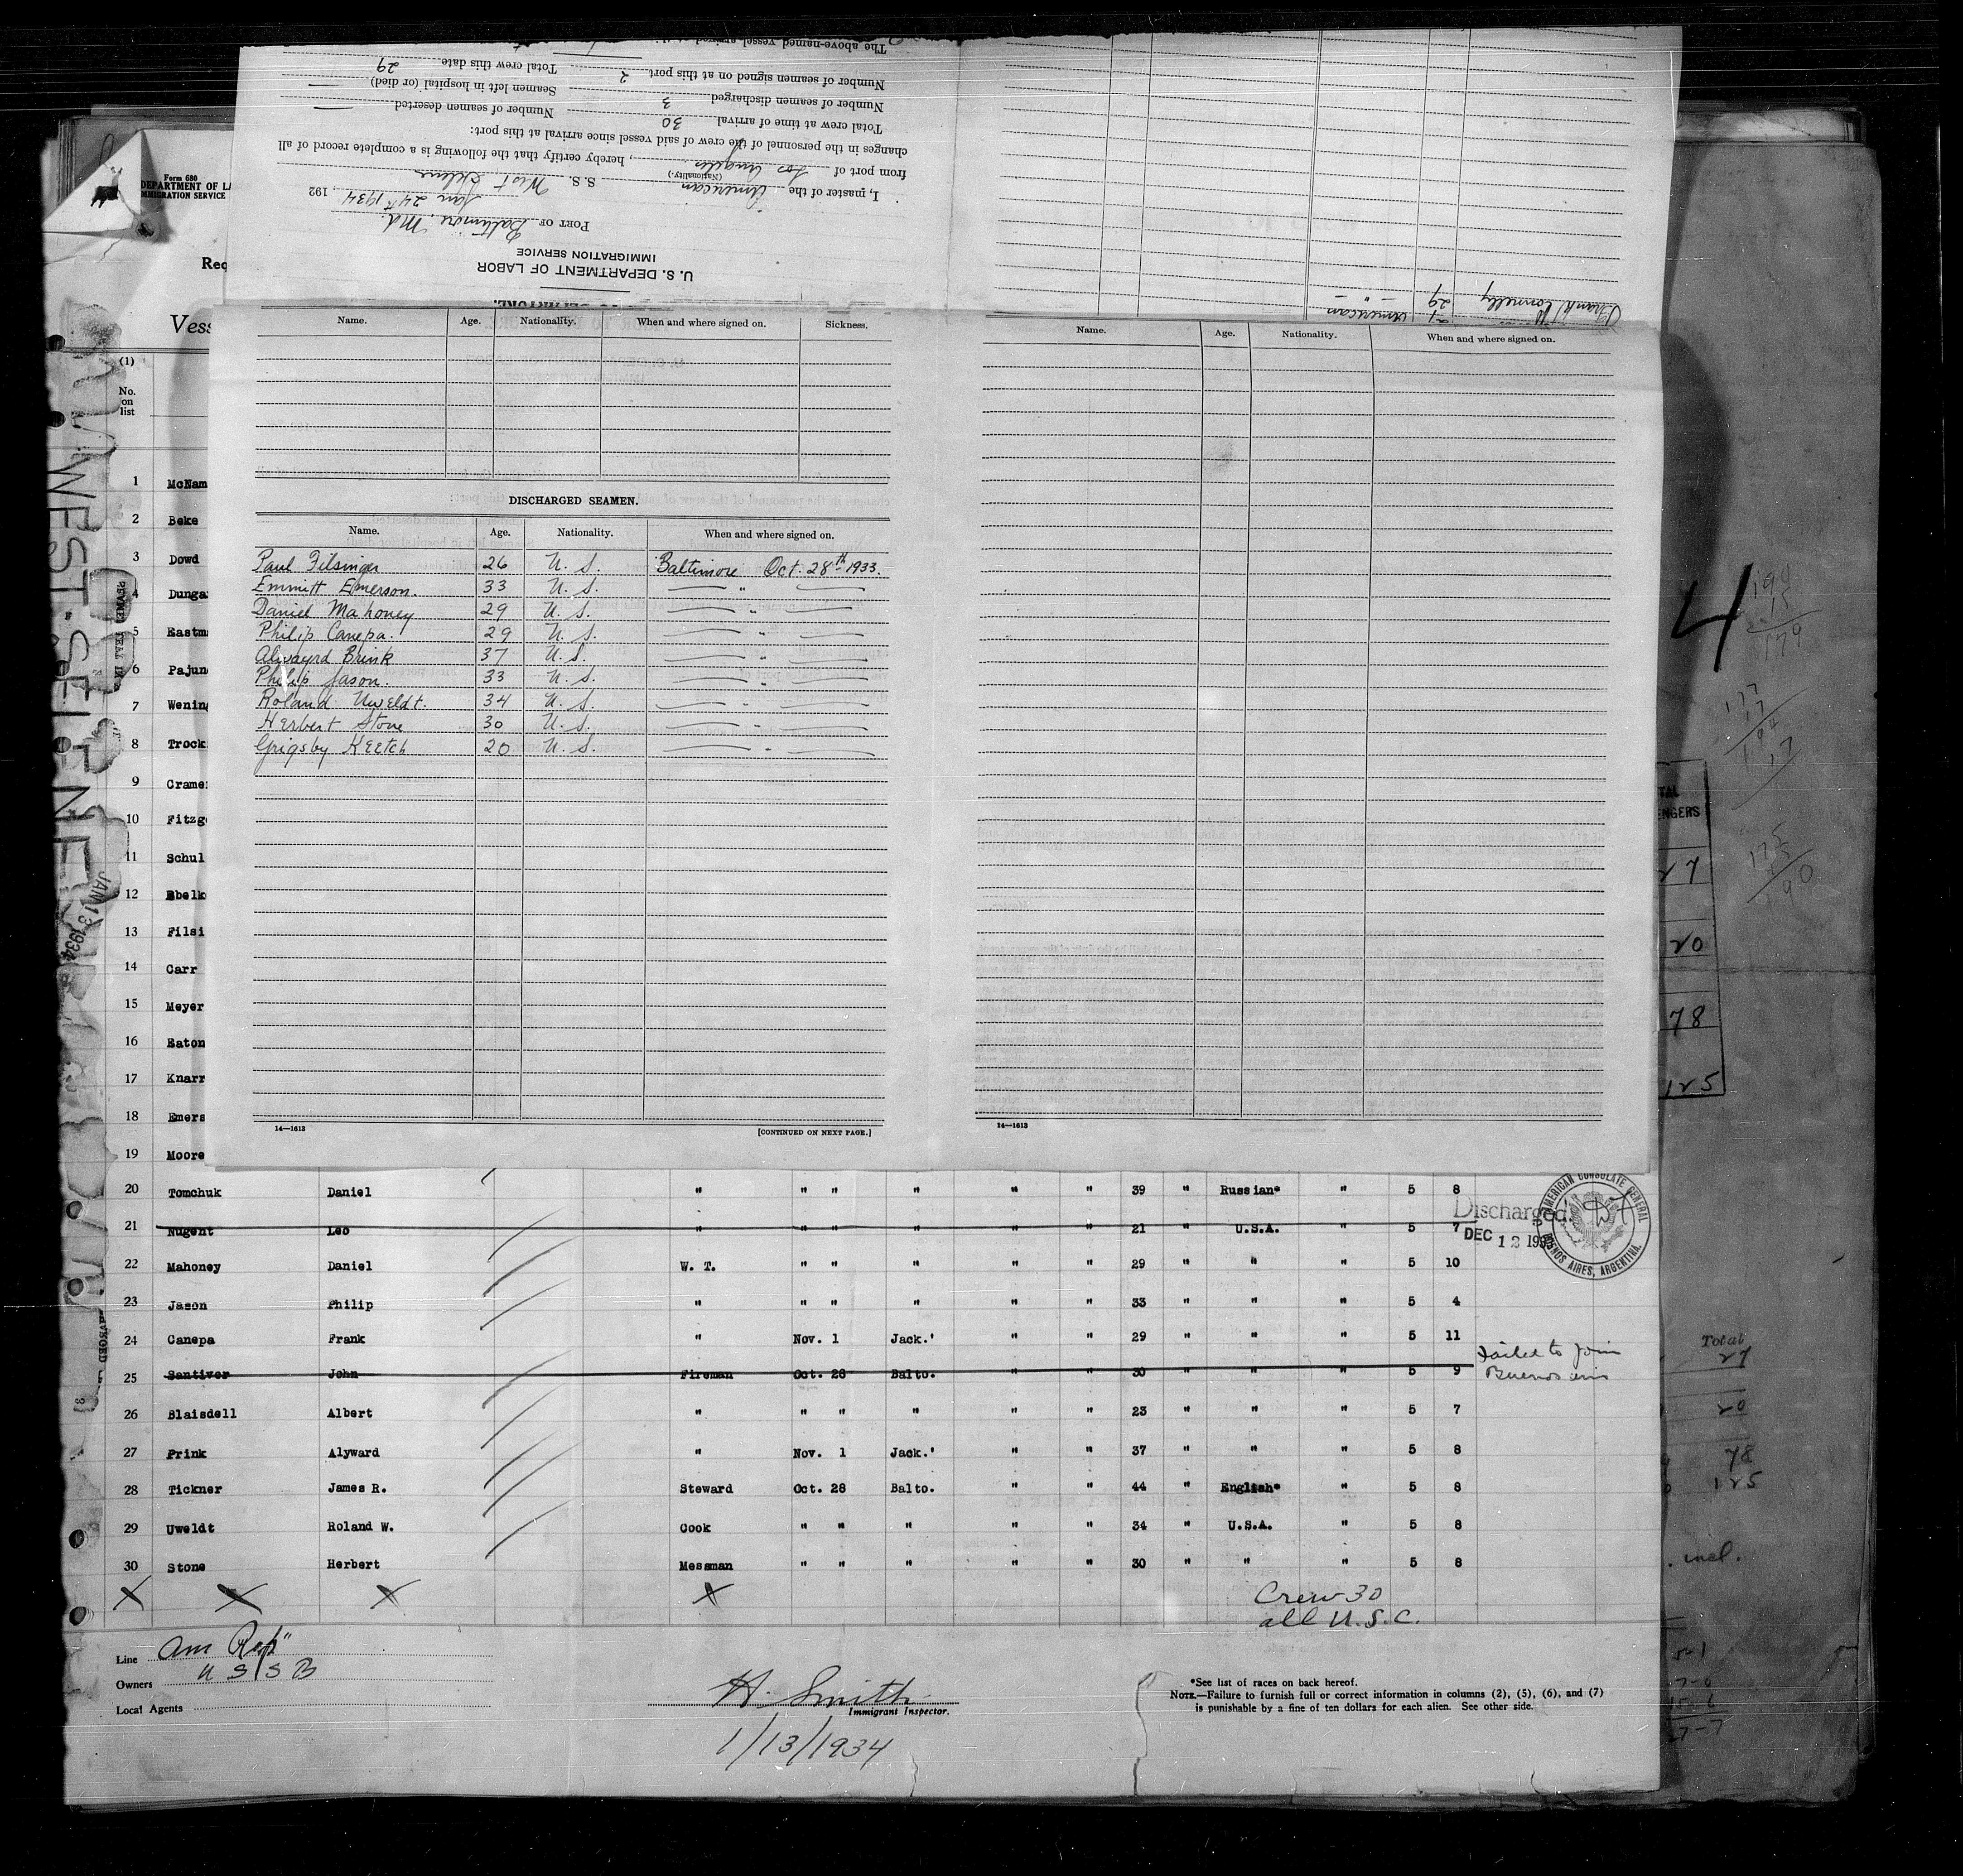 The above-named vessel arrived at
Number of seamen signed on at this port 2 Total crew this date 29
Number of seamen discharged 3 Seamen left in hospital (or died)
Total crew at time of arrival 30 Number of seamen deserted
changes in the personnel of the crew of said vessel since arrival at this port:
from port of Los Angeles, hereby certify that the following is a complete record of all
(Nationality.)
I, master of the American S. S. West Selene
Jan 24th 1934, 192
PORT OF Baltimore, Md.
IMMIGRATION SERVICE
U. S. DEPARTMENT OF LABOR
Frank Connelly 29 American
Form 680
DEPARTMENT OF LA
MMIGRATION SERVICE
Req
Vess
(1)
No.
on
list
WEST SELENE
JAN 13 1934
Name. Age. Nationality. When and where signed on. Sickness.
DISCHARGED SEAMEN.
Name. Age. Nationality. When and where signed on.
Paul Filsinger 26 U. S. Baltimore Oct. 28th 1933.
Emmitt Emerson. 33 U. S. "
Daniel Mahoney 29 U. S. "
Philip Canepa. 29 U. S. "
Alwayrd Brink 37 U. S. "
Philip Jason. 33 U. S. "
Roland Uweldt. 34 U. S. "
Herbert Stone 30 U. S. "
Grigsby Keetch 20 U. S. "
14—1613 [CONTINUED ON NEXT PAGE.]
Name. Age. Nationality. When and where signed on.
14—1613
1 McNam
2 Beke
3 Dowd
4 Dunga
5 Eastm
6 Pajun
7 Wening
8 Trock
9 Crame
10 Fitzge
11 Schul
12 Ebelk
13 Filsi
14 Carr
15 Meyer
16 Eaton
17 Knarr
18 Emers
19 Moore
20 Tomchuk Daniel " " " " " " 39 " Russian* " 5 8
21 Nugent Leo " " " " " " 21 " U.S.A. " 5 7 Discharged.
DEC 12 193
AMERICAN CONSULATE GENERAL
BUENOS AIRES, ARGENTINA.
22 Mahoney Daniel W. T. " " " " " 29 " " " 5 10
23 Jason Philip " " " " " " 33 " " " 5 4
24 Canepa Frank " Nov. 1 Jack.' " " 29 " " " 5 11
25 Santiver John Fireman Oct. 28 Balto. " " 30 " " " 5 9 Failed to join
Buenos Aires
26 Blaisdell Albert " " " " " " 23 " " " 5 7
27 Prink Alyward " Nov. 1 Jack.' " " 37 " " " 5 8
28 Tickner James R. Steward Oct. 28 Balto. " " 44 " English* " 5 8
29 Uweldt Roland W. Cook " " " " " 34 " U.S.A. " 5 8
30 Stone Herbert Messman " " " " " 30 " " " 5 8
X X X X
Crew 30
all U. S. C.
Line Am Rep"
Owners U S S B
Local Agents
H. Smith
Immigrant Inspector.
1/13/1934
*See list of races on back hereof.
NOTE.—Failure to furnish full or correct information in columns (2), (5), (6), and (7)
is punishable by a fine of ten dollars for each alien. See other side.
4
179
TAL
ENGERS
27
20
78
125
Total
27
20
78
125
. incl.